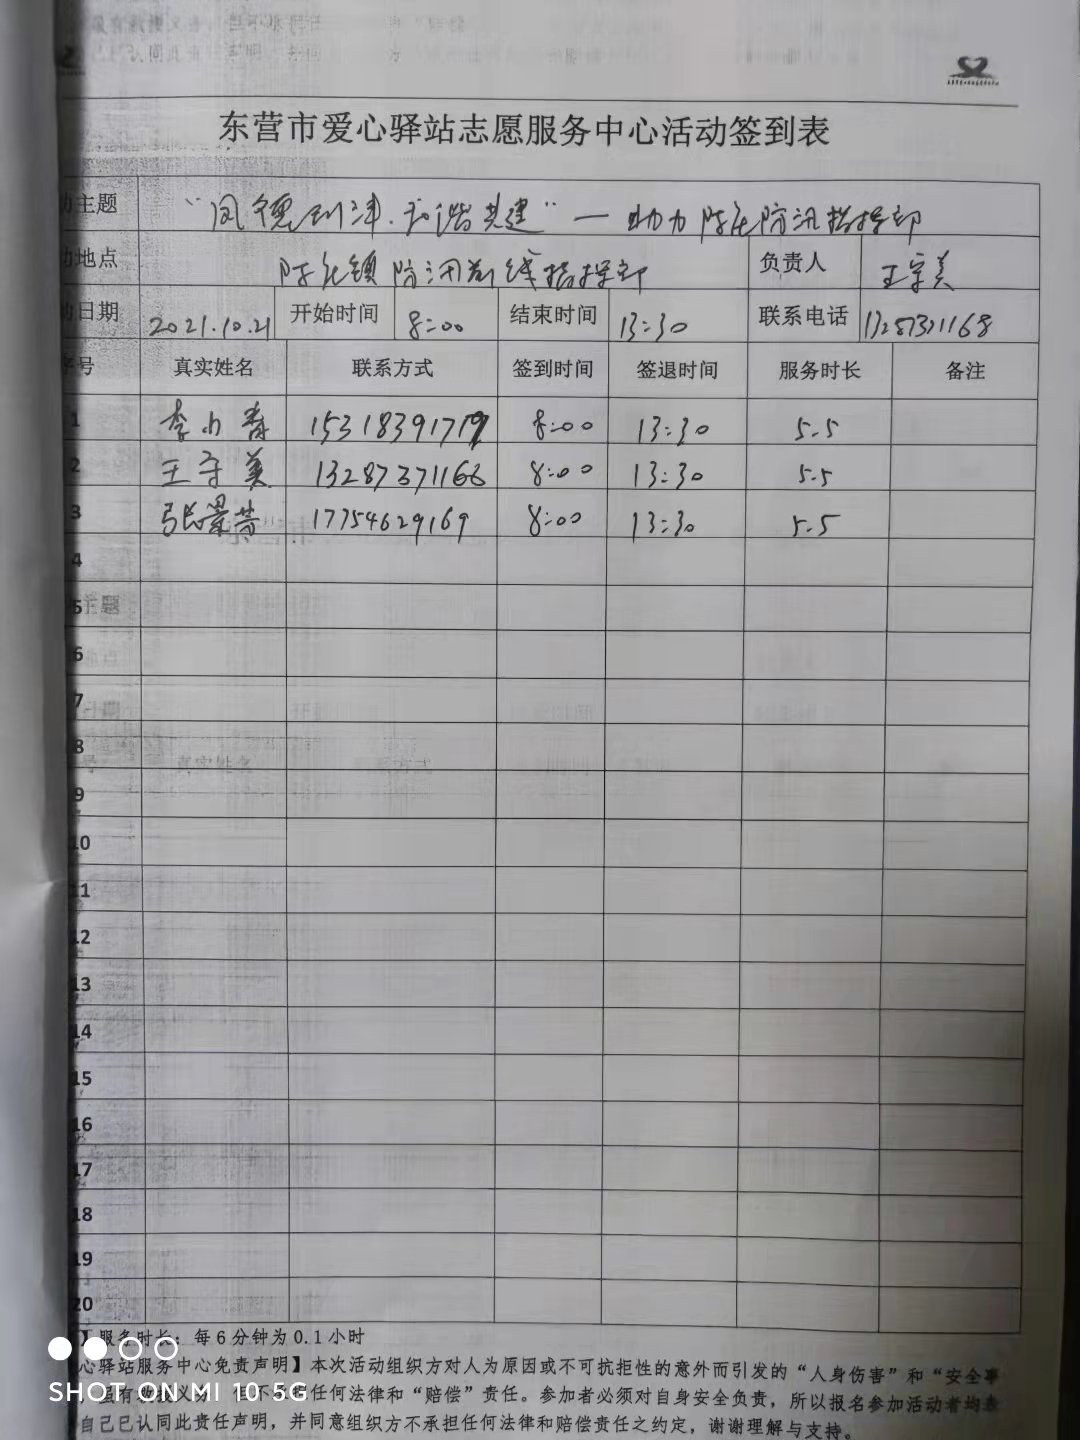 东营市爱心驿站志愿服务中心活动签到表
动主题 "同德利津·和谐共建"—助力陈庄防汛指挥部
动地点 陈庄镇防汛前线指挥部 负责人 王守美
动日期 2021.10.21 开始时间 8:00 结束时间 13:30 联系电话 13287371168
序号 真实姓名 联系方式 签到时间 签退时间 服务时长 备注
1 李小春 15318391719 8:00 13:30 5.5
2 王守美 13287371168 8:00 13:30 5.5
3 张景芳 17754629169 8:00 13:30 5.5
4
5
6
7
8
9
10
11
12
13
14
15
16
17
18
19
20
】服务时长：每6分钟为0.1小时
心驿站服务中心免责声明】本次活动组织方对人为原因或不可抗拒性的意外而引发的“人身伤害”和“安全事
但不承担任何法律和“赔偿”责任。参加者必须对自身安全负责，所以报名参加活动者均表
自己已认同此责任声明，并同意组织方不承担任何法律和赔偿责任之约定，谢谢理解与支持。
SHOT ON MI 10 5G